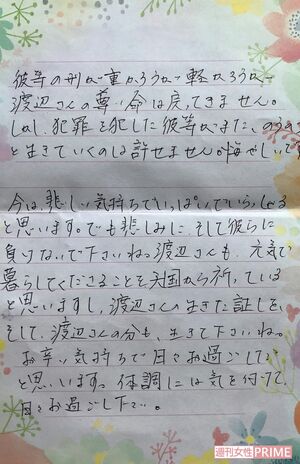 彼等の刑が重かろうが軽かろうが
渡辺さんの尊い命は戻ってきません。
しかし、犯罪を犯した彼等がまた、のうのう
と生きていくのは許せません。悔やしいです
今は、悲しい気持ちでいっぱいでいらっしゃる
と思います。でも悲しみに、そして彼らに
負けないで下さいね。渡辺さんも、元気で
暮らしてくださることを天国から祈っている
と思いますし、渡辺さんの生きた証しを、
そして、渡辺さんの分も、生きて下さいね。
お辛い気持ちで日々お過ごしでしょう
と思います。体調には気を付けて、
日々お過ごし下さい。
週刊女性PRIME